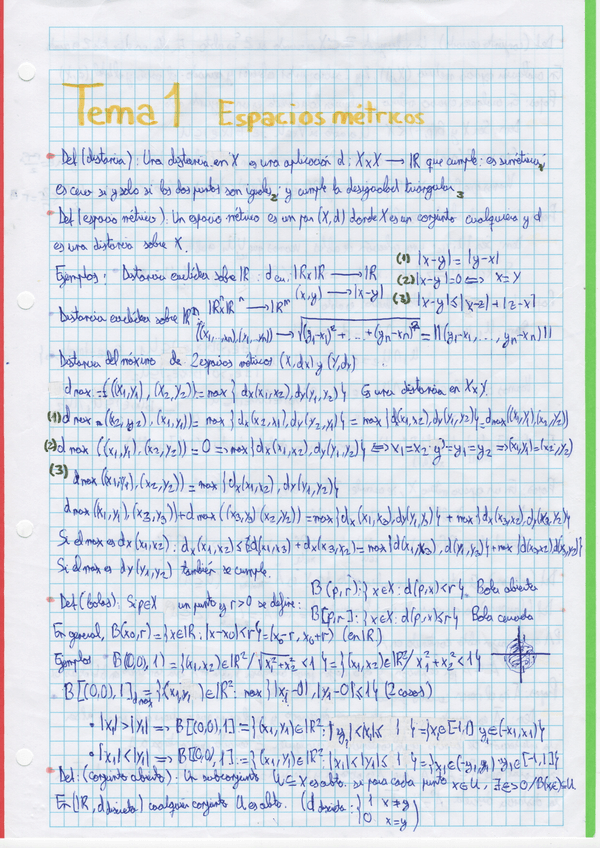 Tema 1 Espacios métricos
Def (distancia): Una distancia en X es una aplicación d: X×X → IR que cumple: es simétrica,1
es cero si y solo si los dos puntos son iguales,2 y cumple la desigualdad triangular.3
Def (espacio métrico). Un espacio métrico es un par (X,d) donde X es un conjunto cualquiera y d
es una distancia sobre X.
(1) |x-y| = |y-x|
Ejemplos: Distancia euclídea sobre IR: d eu.: IR×IR → IR
(x,y) → |x-y|
(2) |x-y|=0 ⟺ x=y
(3) |x-y| ≤ |x-z| + |z-x|
Distancia euclídea sobre IRⁿ: IRⁿ×IRⁿ → IRⁿ
((x₁, ..., xn),(y₁, ..., yn)) → √(y₁-x₁)² + ... + (yn-xn)² = ||(y₁-x₁, ..., yn-xn)||
Distancia del máximo de 2 espacios métricos (X,dx) y (Y,dy)
d max = ((x₁,y₁), (x₂,y₂)) = max { dx(x₁,x₂), dy(y₁,y₂)} Es una distancia en X×Y.
(1) d max ((x₂,y₂), (x₁,y₁)) = max {dx(x₂,x₁), dy(y₂,y₁)} = max {d(x₁,x₂), dy(y₁,y₂)} = dmax((x₁,y₁),(x₂,y₂))
(2) d max ((x₁,y₁), (x₂,y₂)) = 0 ⟹ max{dx(x₁,x₂), dy(y₁,y₂)} ⟺ x₁=x₂ y y₁=y₂ ⟹ (x₁,y₁)=(x₂,y₂)
(3) d max ((x₁,y₁), (x₂,y₂)) = max {dx(x₁,x₂), dy(y₁,y₂)}
d max ((x₁,y₁), (x₃,y₃)) + d max ((x₃,y₃) (x₂,y₂)) = max {dx(x₁,x₃), dy(y₁,y₃)} + max {dx(x₃,x₂), dy(y₃,y₂)}
Si el max es dx(x₁,x₂): dx(x₁,x₂) ≤ d(x₁,x₃) + dx(x₃,x₂) = max{d(x₁,x₃), d(y₁,y₃)} + max{d(x₃,x₂) d(y₃,y₂)}
Si el max es dy(y₁,y₂) también se cumple.
Def (bolas): Si p∈X un punto y r>0 se define:
B(p,r): {x∈X: d(p,x)<r}. Bola abierta
B[p,r]: {x∈X: d(p,x)≤r} Bola cerrada
En general, B(x₀,r) = {x∈IR: |x-x₀|<r} = (x₀-r, x₀+r) (en IR)
Ejemplos B((0,0), 1) = {(x₁,x₂)∈IR²/ √x₁²+x₂² < 1} = {(x₁,x₂)∈IR²/ x₁²+x₂²<1}
B[(0,0), 1]dmax = {(x₁,y₁)∈IR²: max{|x₁-0|, |y₁-0| ≤ 1} (2 casos)
• |x₁|>|y₁| ⟹ B[(0,0),1] = {(x₁,y₁)∈IR²: |y₁|<|x₁|≤ 1} = {x₁∈[-1,1] y₁∈(-x₁,x₁)}
• |x₁|<|y₁| ⟹ B[(0,0),1] = {(x₁,y₁)∈IR²: |x₁|<|y₁|≤ 1} = {x₁∈(-y₁,y₁) y₁∈[-1,1]}
Def: (conjunto abierto): Un subconjunto U⊆X es abto. si para cada punto x∈U, ∃ε>0/B(x,ε)⊆U
En (IR, d discreta) cualquier conjunto U es abto. (d discreta: {1 x≠y
0 x=y)